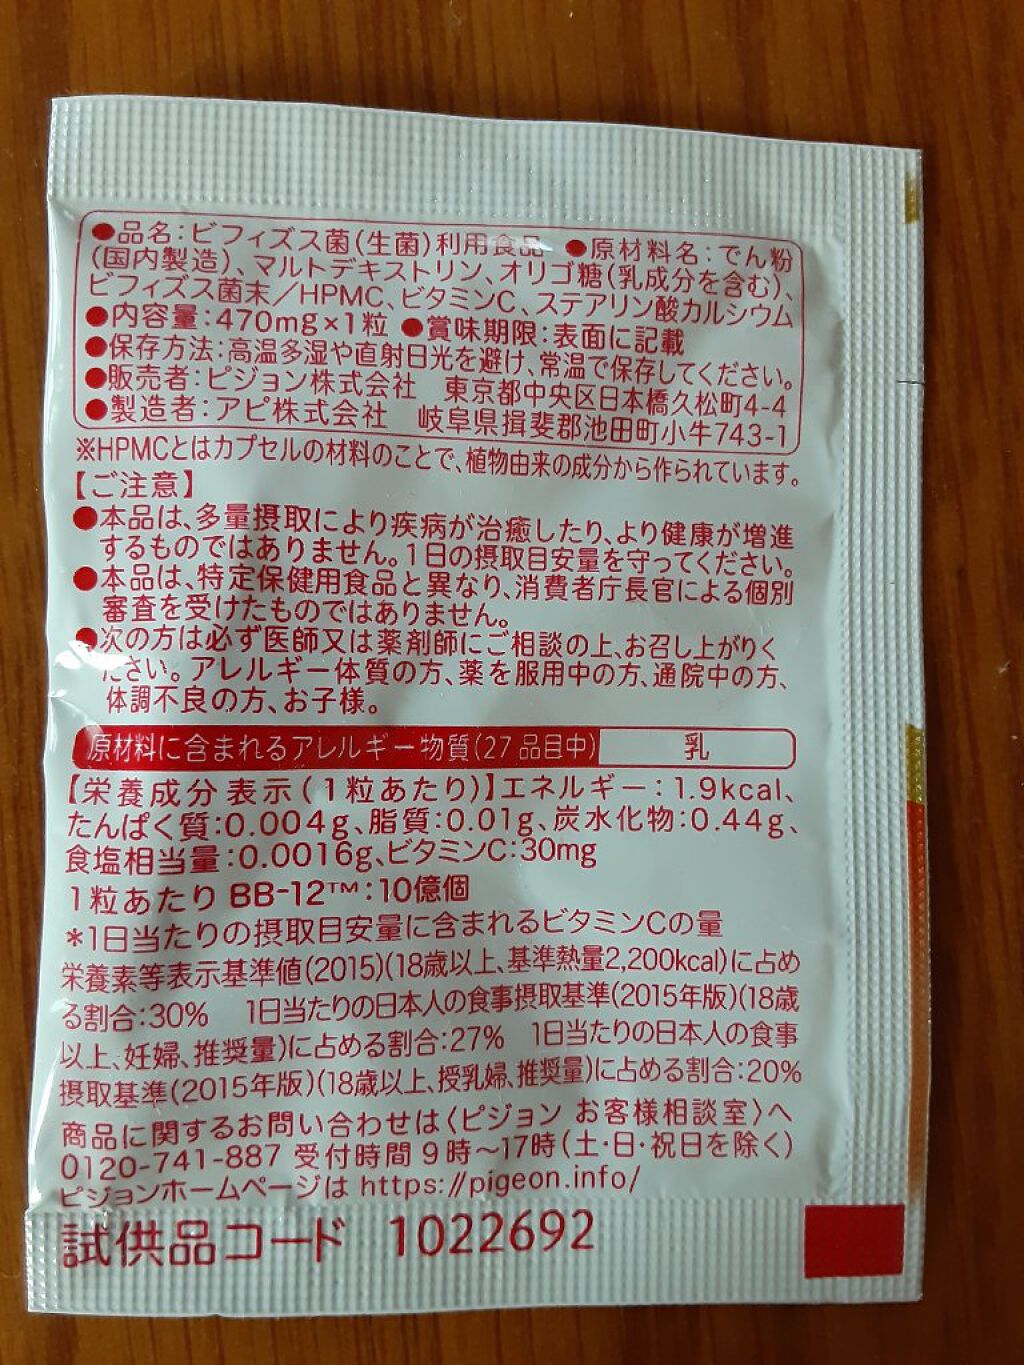 ●品名:ビフィズス菌(生菌)利用食品 ●原材料名:でん粉
(国内製造)、マルトデキストリン、オリゴ糖(乳成分を含む)、
ビフィズス菌末/HPMC、ビタミンC、ステアリン酸カルシウム
●内容量:470mg×1粒 ●賞味期限:表面に記載
●保存方法:高温多湿や直射日光を避け、常温で保存してください。
●販売者:ピジョン株式会社 東京都中央区日本橋久松町4-4
●製造者:アピ株式会社 岐阜県揖斐郡池田町小牛743-1
※HPMCとはカプセルの材料のことで、植物由来の成分から作られています。
【ご注意】
●本品は、多量摂取により疾病が治癒したり、より健康が増進
するものではありません。1日の摂取目安量を守ってください。
●本品は、特定保健用食品と異なり、消費者庁長官による個別
審査を受けたものではありません。
●次の方は必ず医師又は薬剤師にご相談の上、お召し上がりく
ださい。アレルギー体質の方、薬を服用中の方、通院中の方、
体調不良の方、お子様。
原材料に含まれるアレルギー物質(27品目中) 乳
【栄養成分表示(1粒あたり)】エネルギー:1.9kcal、
たんぱく質:0.004g、脂質:0.01g、炭水化物:0.44g、
食塩相当量:0.0016g、ビタミンC:30mg
1粒あたり BB-12™:10億個
*1日当たりの摂取目安量に含まれるビタミンCの量
栄養素等表示基準値(2015)(18歳以上、基準熱量2,200kcal)に占め
る割合:30% 1日当たりの日本人の食事摂取基準(2015年版)(18歳
以上、妊婦、推奨量)に占める割合:27% 1日当たりの日本人の食事
摂取基準(2015年版)(18歳以上、授乳婦、推奨量)に占める割合:20%
商品に関するお問い合わせは〈ピジョン お客様相談室〉へ
0120-741-887 受付時間9時~17時(土・日・祝日を除く)
ピジョンホームページは https://pigeon.info/
試供品コード 1022692